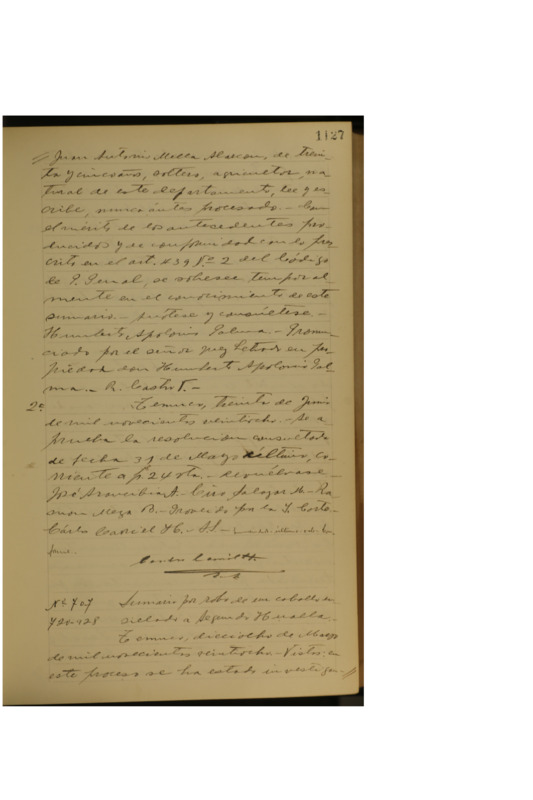 1127
Juan Antonio Mella Alarcon, de trein-
ta y cinco años, soltero, agricultor, na-
tural de este departamento, lee y es-
cribe, nunca ántes procesado.- Con
el mérito de los antecedentes pro-
ducidos y de conformidad con lo pres-
crito en el art. 439 No 2 del Código
de P. Penal, se sobresee temporal-
mente en el conocimiento de este
sumario.- Anótese y consúltese.-
Humberto Apolonio Palma.- Pronun-
ciado por el señor Juez Letrado en pro-
piedad don Humberto Apolonio Pal-
ma.- R. Castro F.-
2o. Temuco, treinta de Junio
de mil novecientos veintiocho.- Se a-
prueba la resolucion consultada
de fecha 31 de Mayo último, co-
rriente a f. 24 vta.- Devuélvase.-
José Aravena A.- Ciro Salazar M.- Ra-
mon Meza B.- Proveido por la I. Corte.-
No 707 Sumario por robo de un caballo en-
720-428 sillado a Segundo Hualla.-
Temuco, dieciocho de Mayo
de mil novecientos veintiocho.- Vistos: en
este proceso se ha estado investigan-